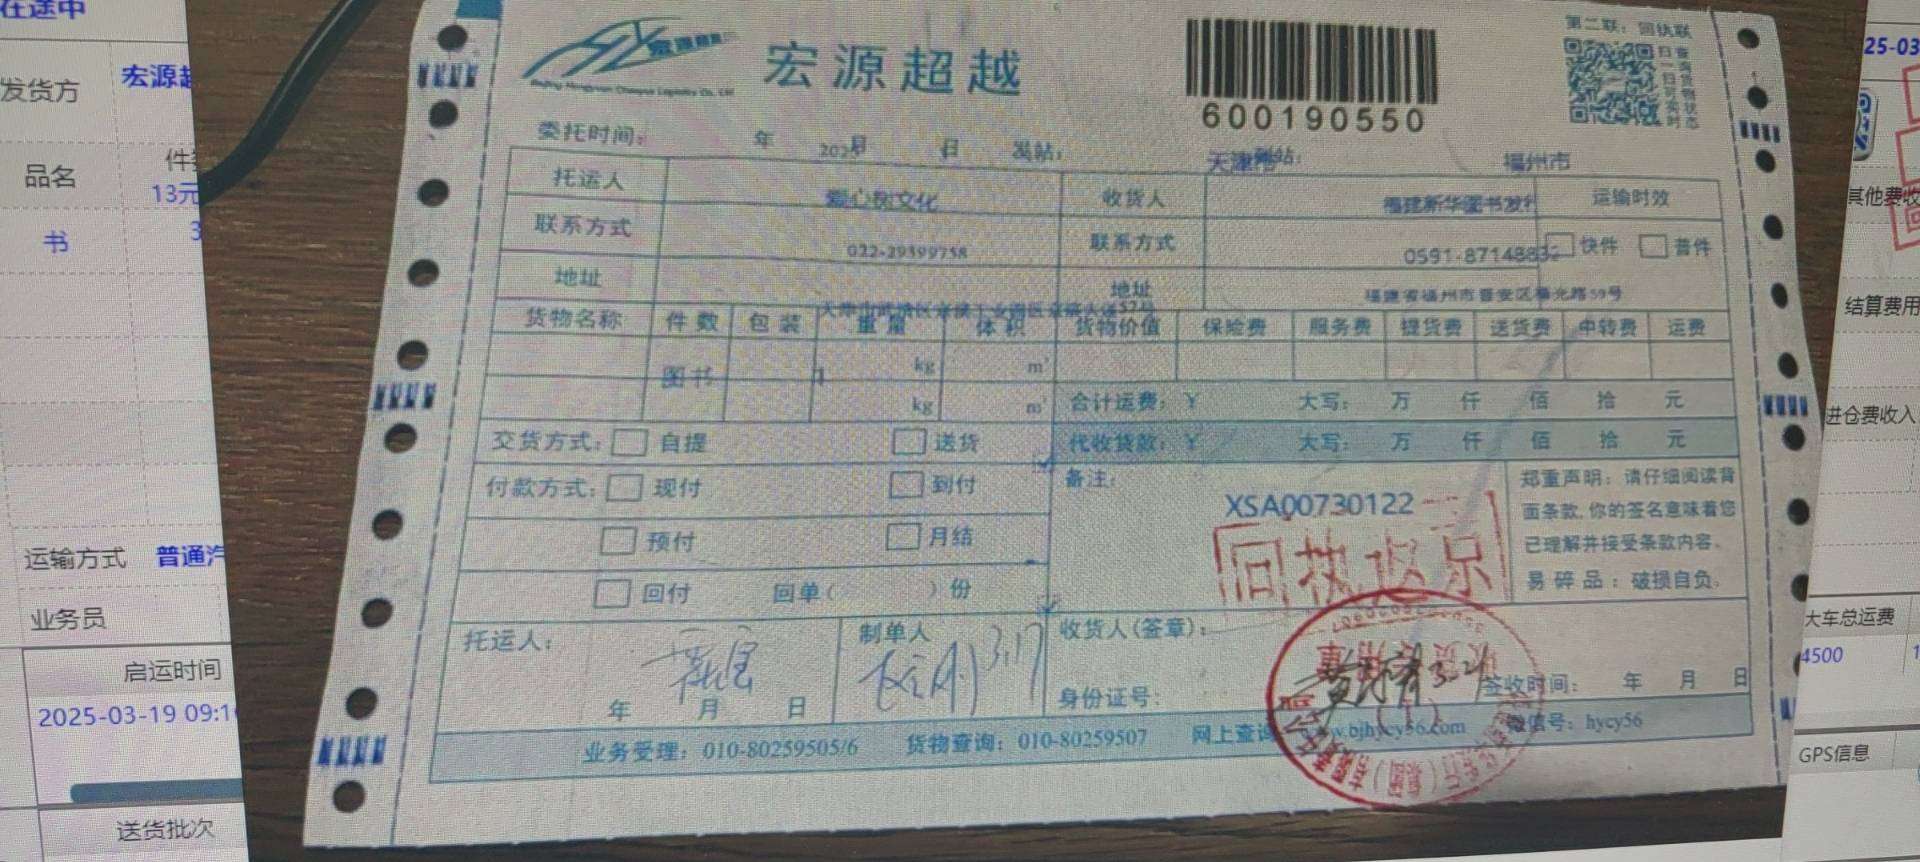 在途中
发货方
宏源
品名
件
13元
书
3
运输方式
普通汽
业务员
启运时间
2025-03-19 09:1
送货批次
宏源超越
600190550
第二联：回执联
扫一扫
委托时间： 年 月 日 发站： 天津市 到站： 福州市
托运人 爱心树文化 收货人 福建新华图书发行 运输时效
联系方式 022-29399758 联系方式 0591-87148832 快件 普件
地址 地址 福建省福州市晋安区福光路59号
货物名称 件数 包装 重量 体积 货物价值 保险费 服务费 提货费 送货费 中转费 运费
图书 1 kg m³
kg m³ 合计运费：￥ 大写： 万 仟 佰 拾 元
交货方式： 自提 送货 代收货款：￥ 大写： 万 仟 佰 拾 元
付款方式： 现付 到付 备注：
预付 月结
回付 回单（ ）份
XSA00730122
回执
郑重声明：请仔细阅读背
面条款,你的签名意味着您
已理解并接受条款内容。
易碎品：破损自负。
托运人： 制单人 3.17 收货人(签章)：
年 月 日 身份证号： 3.21 签收时间： 年 月 日
业务受理：010-80259505/6 货物查询：010-80259507 网上查询 www.bjhycy56.com 微信号：hycy56
25-03
其他费收
结算费用
进仓费收入
大车总运费
4500
GPS信息